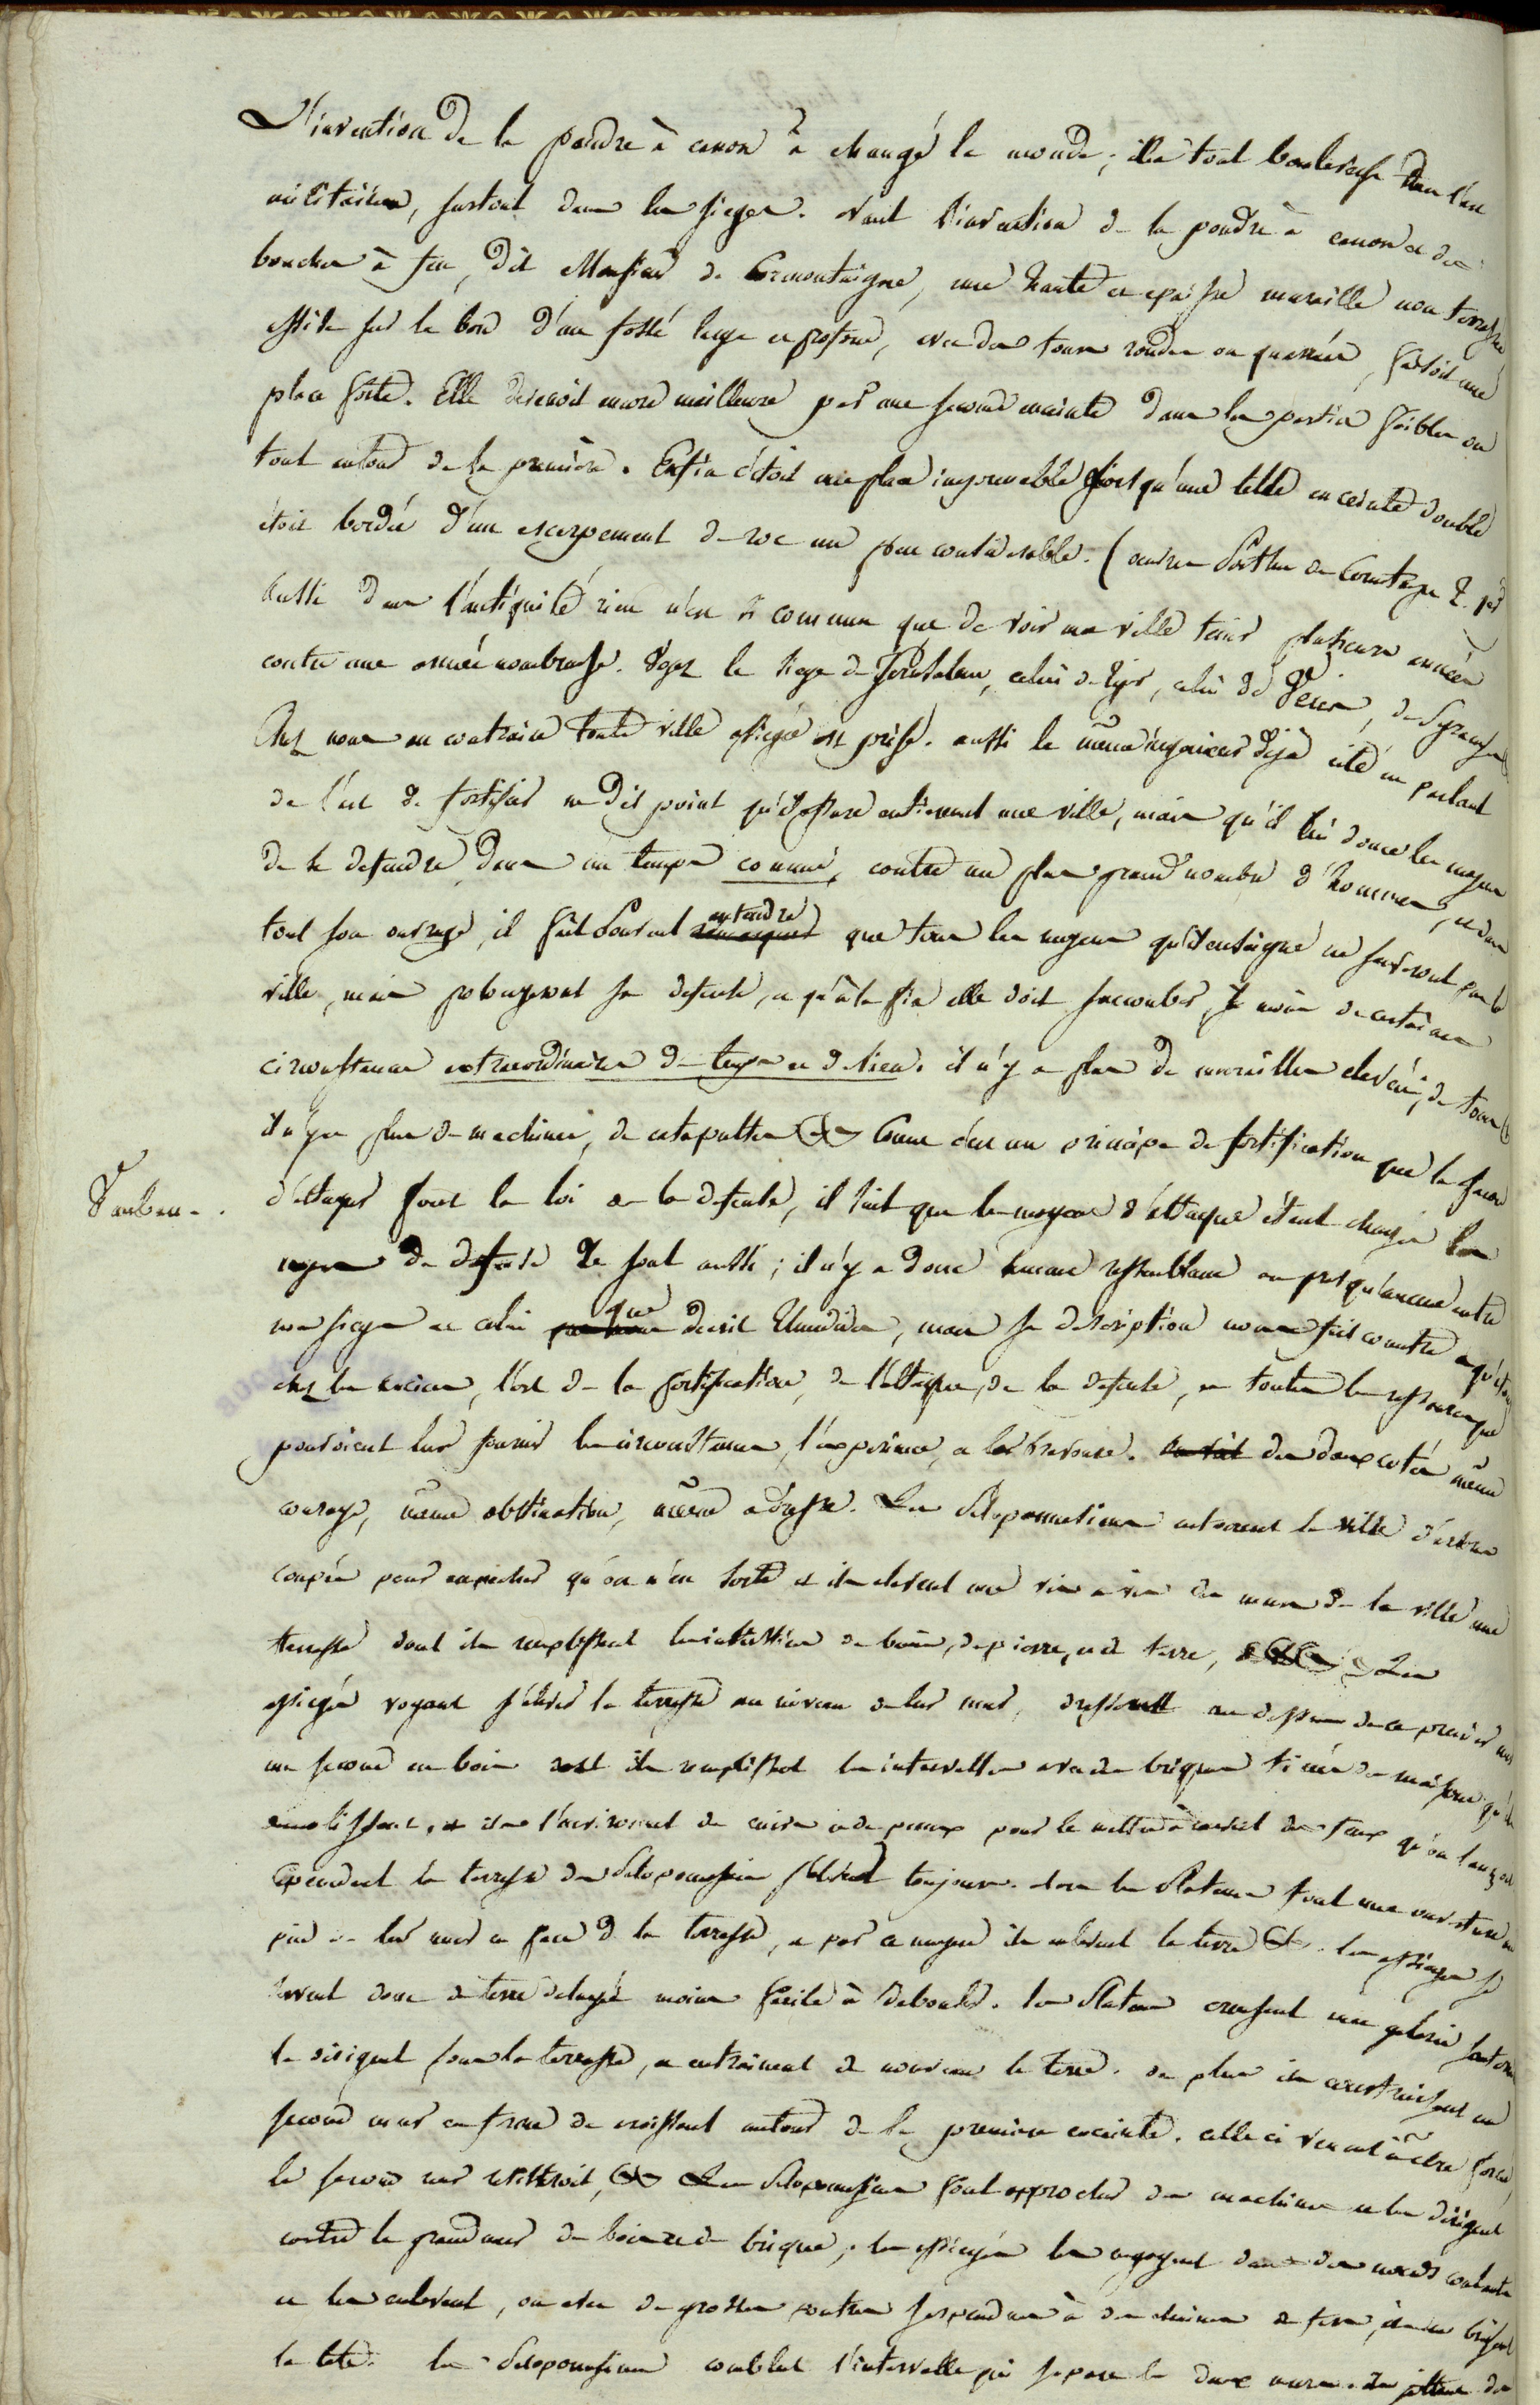 L'invention de la poudre à canon a changé le monde; elle a tout bouleversé dans l'art
militaire, surtout dans les sieges. avant l'invention de la poudre à canon et des
bouches à feu, dit Monsieur de Cormontaigne, une haute et epaisse muraille non terrassée
assise sur le bord d'un fossé large et profond, avec des tours rondes ou quarrées, faisoit une
place forte. Elle devenoit encore meilleure par une seconde enceinte dans les parties faibles ou
tout autour de la première. Enfin c'étoit une place imprenable lorsqu'une telle enceinte double
étoit bordée d'un escarpement de roc un peu considérable. (œuvres Posthu de Cormtaigne
Aussi dans l'antiquité rien n'est si commun que de voir une ville tenir plusieurs années
contre une armée nombreuse. Voyez le siege de Jerusalem, celui de Tyr, celui de Veies, de Syracuse
Chez nous au contraire toute ville assiegée est prise. aussi le même ingenieur déjà cité en parlant
de l'art de fortifier ne dit point qu'il assure entierement une ville, mais qu'il lui donne les moyens
de se defendre, dans un temps connu, contre un plus grand nombre d'hommes, et dans
tout son ouvrage, il fait souvent entendre que tous les moyens qu'il enseigne ne sauveront pas la
ville, mais prolongeront sa defense, et qu'à la fin elle doit succomber, à moins de certaines
circonstances extraordinaires de temps et de lieu. il n'y a plus de murailles elevées, de tours
il n'y a plus de machines, de catapultes &c. Comme c'est un principe de fortification que la façon
Vauban.. d'attaquer fait la loi à la defense, il suit que les moyens d'attaque étant changés les
moyens de defense le sont aussi; il n'y a donc aucune ressemblance ou presqu'aucune entre
nos sieges et celui que decrit Thucidide, mais sa description nous fait connoitre ce qu'étoit
chez les anciens, l'art de la fortification, de l'attaque, de la defense, et toutes les ressources que
pouvoient leur fournir les circonstances, l'experience, et la bravoure. des deux cotés même
courage, même obstination, même adresse. Les Peloponnesiens entourent la ville d'arbres
coupés pour empecher qu'on n'en sorte et ils elevent vis à vis des murs de la ville une
terrasse dont ils remplissent les interstices de bois, de pierre, et de terre, Les
assiegés voyant s'élever la terrasse au niveau de leur mur, dressent au dessus de ce premier mur
un second en bois dont ils remplissent les intervalles avec des briques tirées des maisons qu'ils
demolissent, et ils l'environnent de cuirs et de peaux pour le mettre à couvert des feux qu'on lançoit
Cependant la terrasse des Peloponnesiens s'elevoit toujours. alors les Platéens font une ouverture au
pied de leur mur en face de la terrasse, et par ce moyen ils enlevent la terre &c. les assiegeans se
servent donc de terre delayée moins facile à debouler. les Platéens creusent une galerie souterraine
la dirigent sous la terrasse, et entrainent de nouveau la terre. de plus ils construisent un
second mur en forme de croissant autour de la premiere enceinte. celle ci venant à être forcée,
le second mur resisteroit, &c Les Peloponnesiens font approcher des machines et les dirigent
contre le grand mur de bois et de brique; les assiegés les engagent dans des nœuds coulants
et les enlevent, ou avec de grosses poutres suspendues à des chaines de fer, ils en brisent
la tête. les Peloponnesiens comblent l'intervalle qui separe les deux murs.